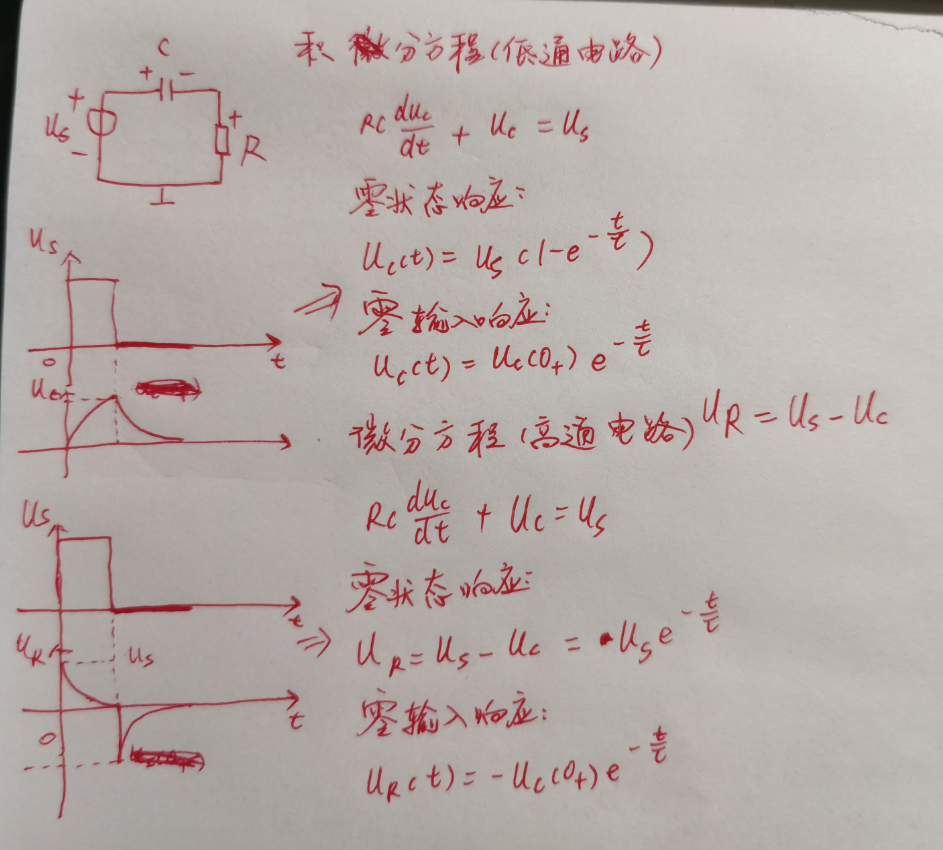 积分方程(低通电路)
C
+ -
+
Us
-
+
R
RC duc/dt + Uc = Us
零状态响应:
Uc(t) = Us (1-e^-t/τ)
Us
0
t
⇒ 零输入响应:
Uc(t) = Uc(0+) e^-t/τ
Uc
微分方程(高通电路) UR = Us - Uc
RC duc/dt + Uc = Us
Us
t
零状态响应:
UR
Us
⇒ UR = Us - Uc = Us e^-t/τ
0
t
零输入响应:
UR(t) = -Uc(0+) e^-t/τ